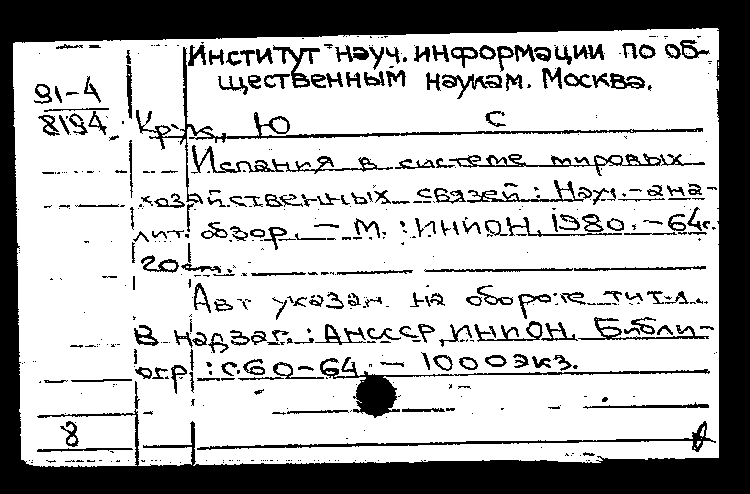 Институт науч. информации по об-
щественным наукам. Москва.
91-4
8194
Крук, Ю С
Испания в системе мировых
хозяйственных связей : Науч.-ана-
лит. обзор. - М. : ИНИОН, 1980. - 64 с.
20 см.
Авт указан на обороте тит.л.
В надзаг. : АНСССР, ИНИОН. Библи-
огр. : с. 60-64. - 1000 экз.
8